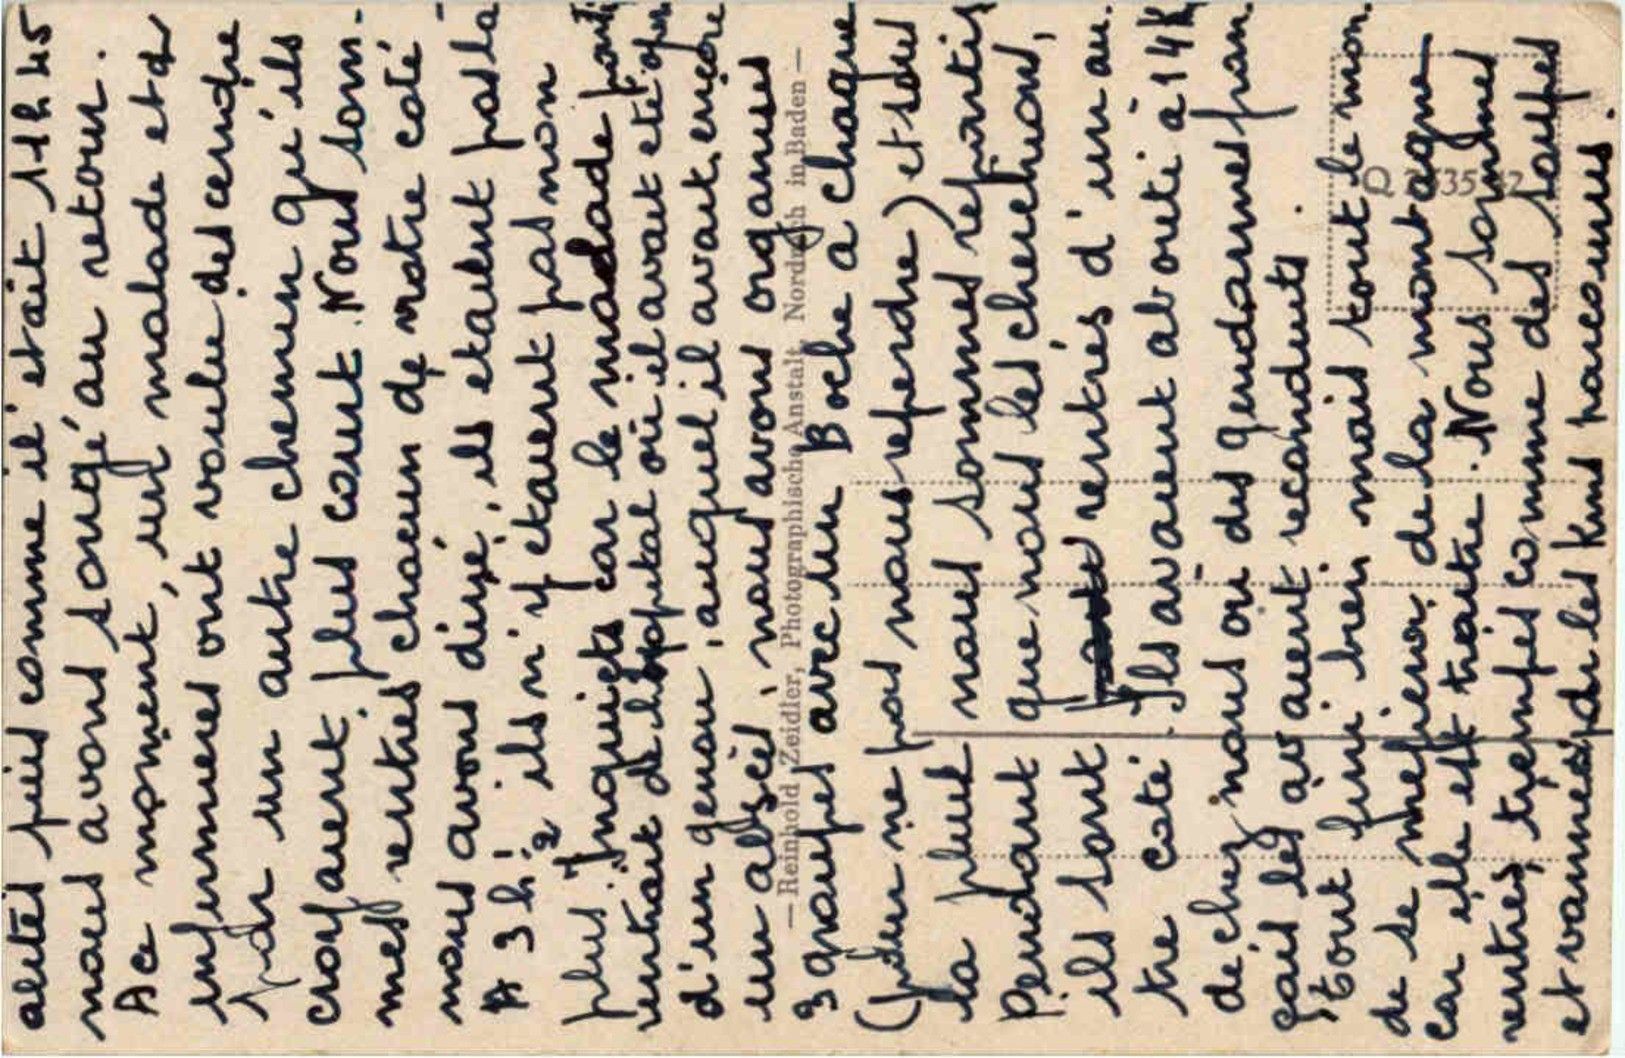 alités puis comme il était 11h45
nous avons songé au retour.
A ce moment, un malade et 2
infirmiers ont voulu descendre
par un autre chemin qu'ils
croyaient plus court. Nous som-
mes rentrés chacun de notre coté
nous avons diné, ils etaient pas là
A 3h ½ ils n'y étaient pas non
plus. Inquiets car le malade
rentrait de l'hopital où il avait été opéré
d'un genou, auquel il avait encore
un abscès, nous avons organisés
3 groupes avec un Boche a chaque
(pour ne pas nous reperdre) et sous
la pluie nous sommes repartis
Pendant que nous les cherchions,
ils sont rentrés d'un au-
tre coté. Ils avaient abouti à 14 K
de chez nous où des gendarmes fran
çais les avaient reconduits.
Tout fini bien mais tout le mon
de se mefiera de la montagne
car elle est traitre. Nous sommes
rentrés trempés comme des soupes
et vannés par les kms parcourus.
— Reinhold Zeidler, Photographische Anstalt, Nordrach in Baden —